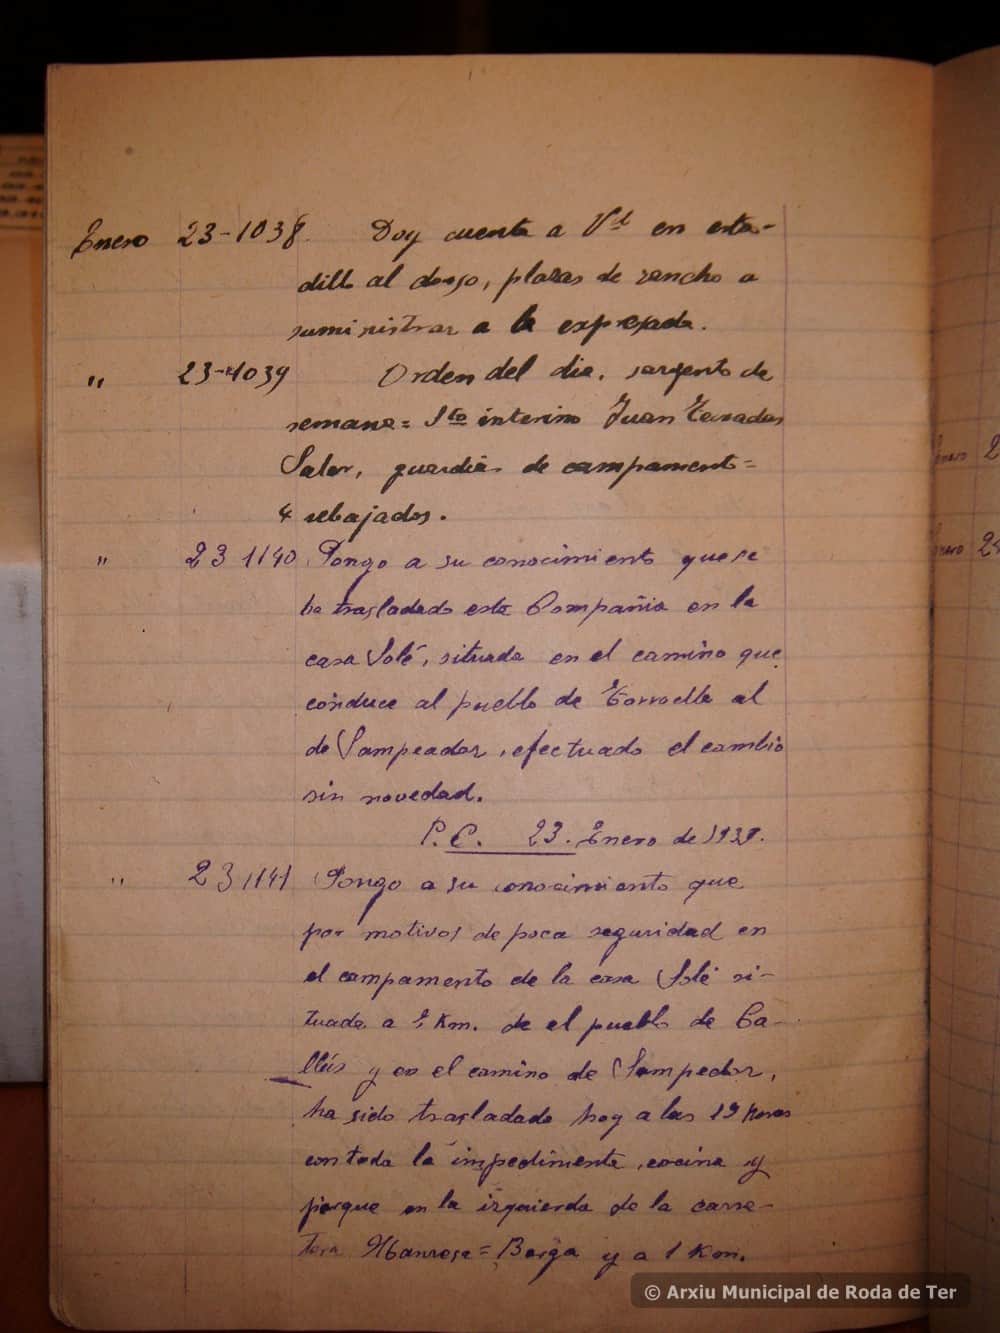 Enero 23-1038 Doy cuenta a Vd en esta-
dillo al dorso, plazas de rancho a
suministrar a la expresada.
" 23-1039 Orden del dia, sargento de
semana = Sto interino Juan Terradas
Saler, guardias de campamento =
4 rebajados.
" 23 1140 Pongo a su conocimiento que se
ha trasladado esta Compañia en la
casa Solé, situada en el camino que
conduce al pueblo de Torroella al
de Sampeador, efectuado el cambio
sin novedad.
P.C. 23. Enero de 1939.
" 23 1141 Pongo a su conocimiento que
por motivos de poca seguridad en
el campamento de la casa Solé si-
tuada a Km. de el pueblo de Ca-
llús y en el camino de Sampedor,
ha sido trasladado hoy a las 19 horas
con toda la impedimenta, cocina y
parque en la izquierda de la carre-
tera Manresa = Berga y a 1 Km.
Enero 2
Enero 24
© Arxiu Municipal de Roda de Ter